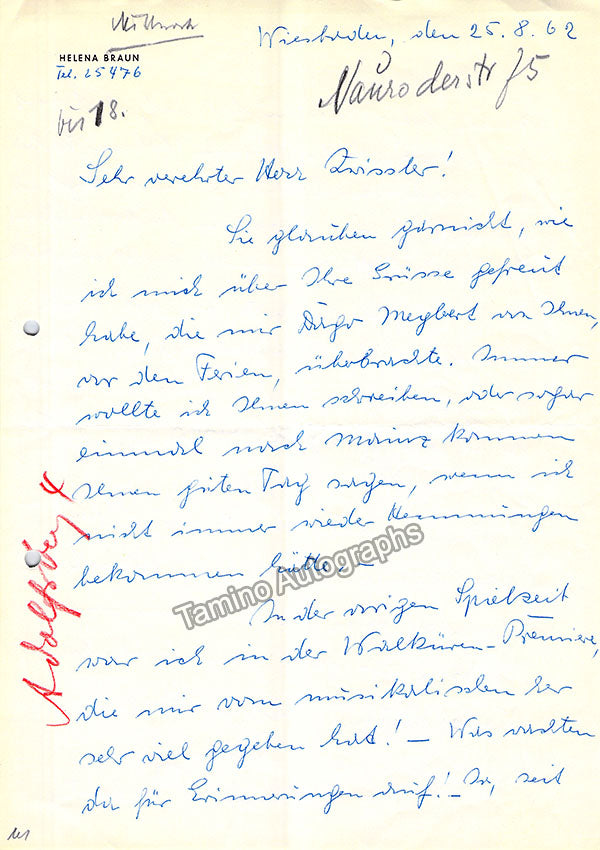 Mittwoch
Wiesbaden, den 25.8.62
HELENA BRAUN
Tel. 25476
Nauroderstr 75
bis 18.
Sehr verehrter Herr Zwissler!
Sie glauben garnicht, wie
ich mich über Ihre Grüsse gefreut
habe, die mir Meybert von Ihnen,
vor den Ferien, überbrachte. Immer
wollte ich Ihnen schreiben, oder sogar
einmal nach Mainz kommen
Ihnen guten Tag sagen, wenn ich
nicht immer wieder Hemmungen
bekommen hätte. –
In der vorigen Spielzeit
war ich in der Walküren-Première,
die mir vom musikalischen her
sehr viel gegeben hat! – Was wachten
da für Erinnerungen auf! – Ja, seit
Adolfsberg 4
Tamino Autographs